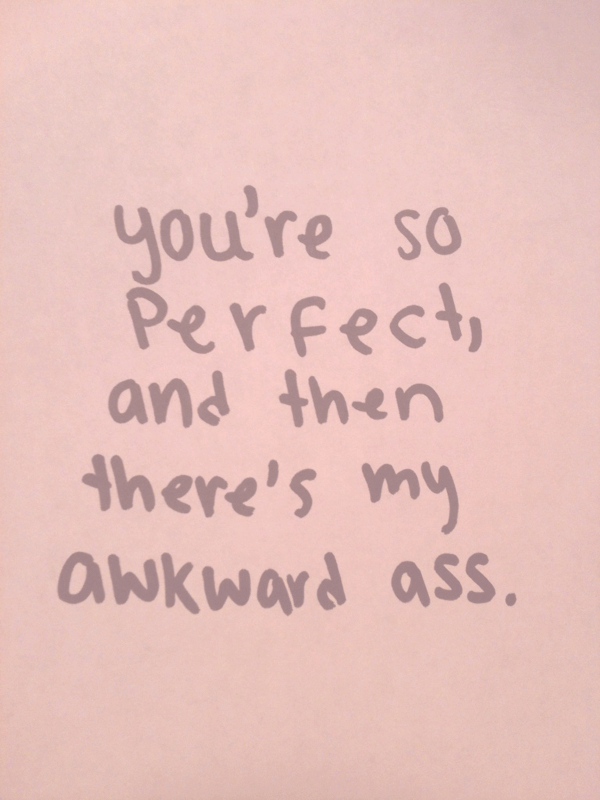 you're so
Perfect,
and then
there's my
awkward ass.